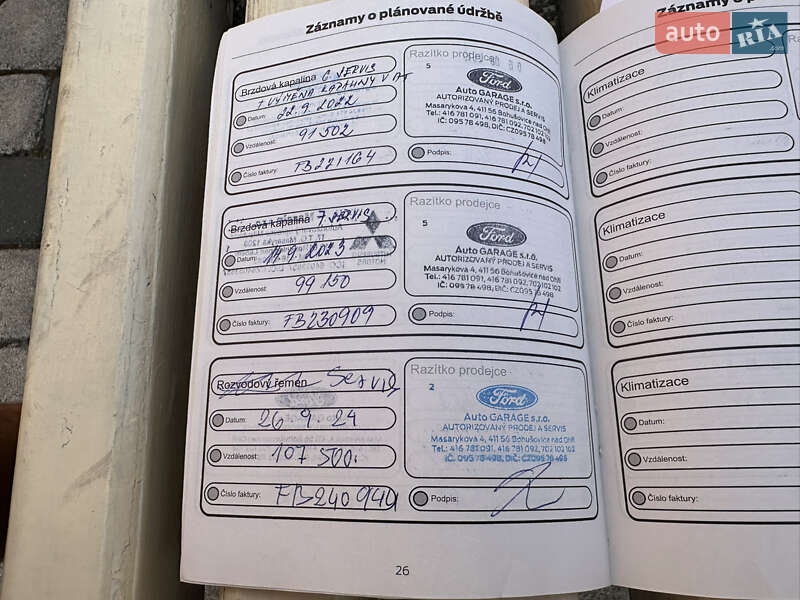 Záznamy o plánované údržbě
Brzdová kapalina 6. SERVIS
+ VÝMĚNA KAPALINY V AT
Datum: 22.9.2022
Vzdálenost: 91 502
Číslo faktury: FB221164
Razítko prodejce
5
Ford
Auto GARAGE s.r.o.
AUTORIZOVANÝ PRODEJ A SERVIS
Masarykova 4, 411 56 Bohušovice nad Ohří
Tel.: 416 781 091, 416 781 092, 702 102 102
IČ: 095 78 498, DIČ: CZ095 78 498
Podpis:
Brzdová kapalina 7. SERVIS
Datum: 14.9.2023
Vzdálenost: 99 150
Číslo faktury: FB230909
Razítko prodejce
5
Ford
Auto GARAGE s.r.o.
AUTORIZOVANÝ PRODEJ A SERVIS
Masarykova 4, 411 56 Bohušovice nad Ohří
Tel.: 416 781 091, 416 781 092, 702 102 102
IČ: 095 78 498, DIČ: CZ095 78 498
Podpis:
Rozvodový řemen Servis
Datum: 26.9.24
Vzdálenost: 107 500.
Číslo faktury: FB240940
Razítko prodejce
2
Ford
Auto GARAGE s.r.o.
AUTORIZOVANÝ PRODEJ A SERVIS
Masarykova 4, 411 56 Bohušovice nad Ohří
Tel.: 416 781 091, 416 781 092, 702 102 102
IČ: 095 78 498, DIČ: CZ095 78 498
Podpis:
26
Klimatizace
Datum:
Vzdálenost:
Číslo faktury:
Klimatizace
Datum:
Vzdálenost:
Číslo faktury:
Klimatizace
Datum:
Vzdálenost:
Číslo faktury:
auto RIA .com